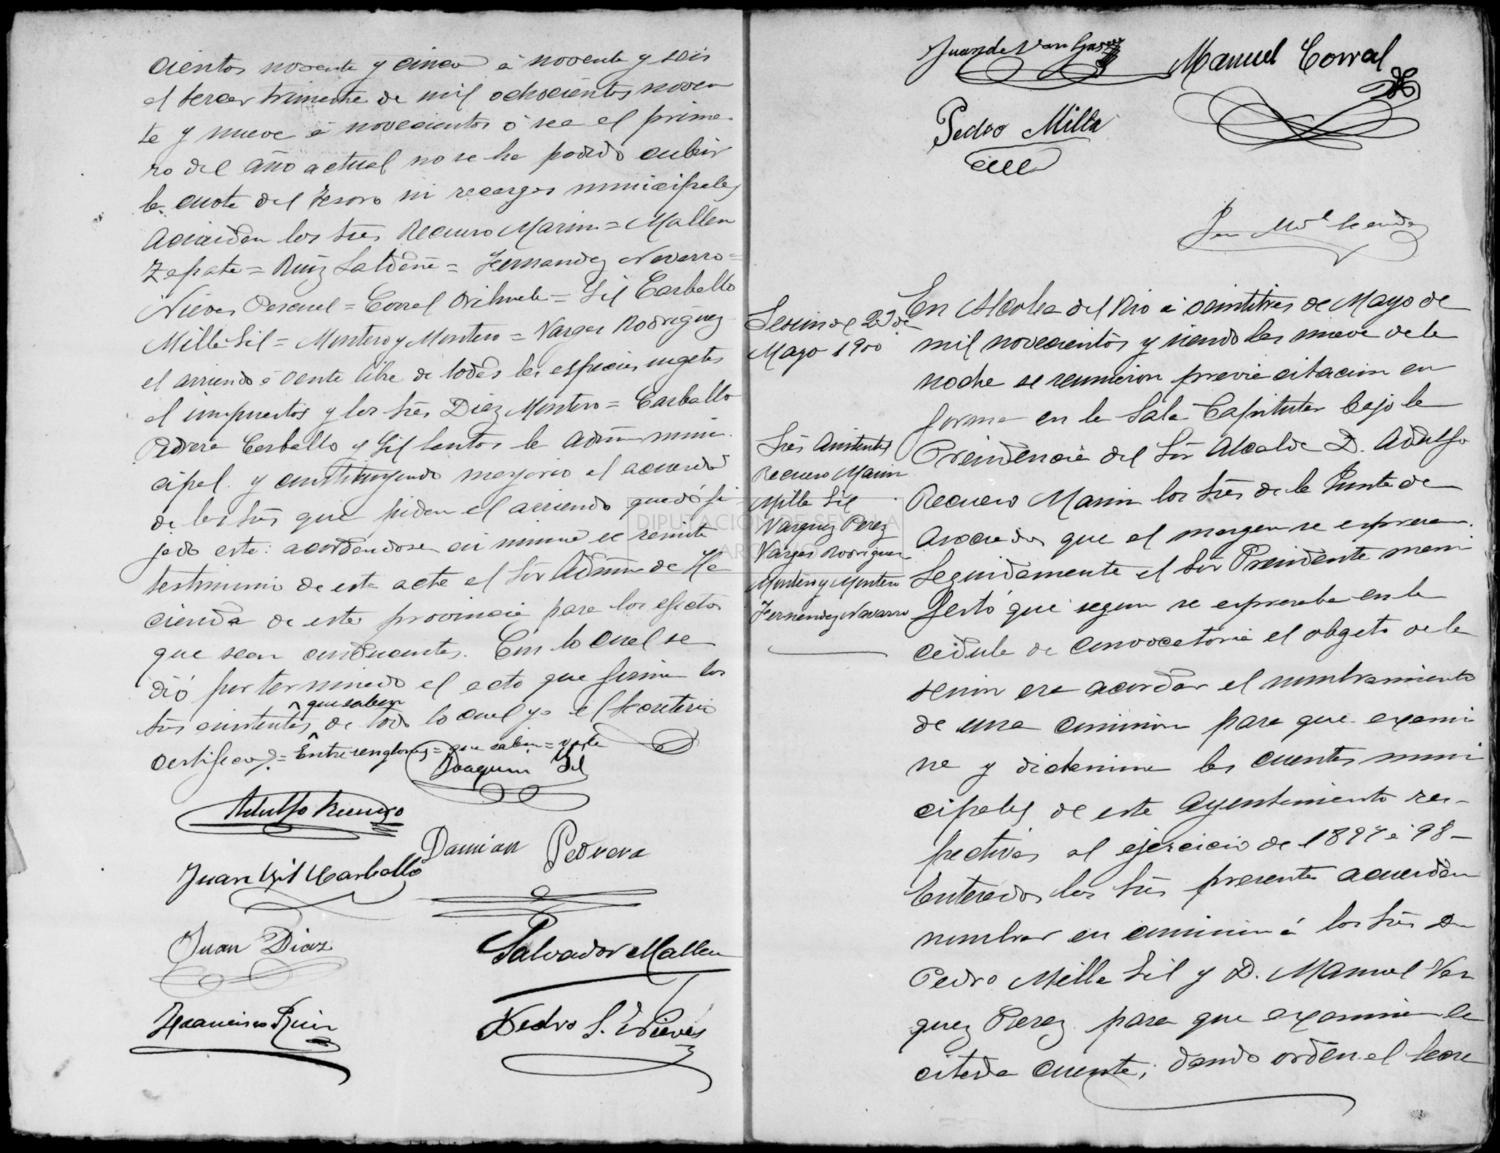 cientos noventa y cinco á noventa y seis
el tercer trimestre de mil ochocientos noven
ta y nueve á novecientos ó sea el prime
ro del año actual no se ha podido cubrir
la cuota del Tesoro ni recargos municipales
Acuerdan los Sres Recuero Marin = Mallen
Zapata = Ruiz = Fernandez Navarro =
Nieves Pascual = Corral Orihuela = Gil Carballo
Milla Gil = Montero y Montero = Vargas Rodriguez
el arriendo á venta libre de todas las especies sugetas
al impuesto, y los Sres Diaz Montero = Carballo
Carballo y Gil Santos la Admon muni
cipal y constituyendo mayoria el acuerdo
de los Sres que piden el arriendo quedó fi
jado este: acordandose asi mismo se remita
testimonio de esta acta al Sor Admor de Ha
cienda de esta provincia para los efectos
que sean conducentes. Con lo cual se
dió por terminado el acto que firman los
Sres asistentes, que saben de todo lo cual yo el Secretario
certifico. = Entre renglones = que saben = vale
Joaquin Gil
Adolfo Recuero
Damian Pedrera
Juan Gil Carballo
Juan Diaz
Salvador Mallen
Francisco Ruiz
Pedro S. Nieves
DIPUTACION DE SEVILLA
Juan de Vargas
Manuel Corral
Pedro Milla
Sesion del 23 de
Mayo 1900
Sres Asistentes
Recuero Marin
Milla Gil
Vazquez Perez
Vargas Rodriguez
Montero y Montero
Fernandez Navarro
En Alcolea del Rio á veintitres de Mayo de
mil novecientos y siendo las nueve de la
noche se reunieron previa citacion en
forma en la Sala Capitular bajo la
Presidencia del Sor Alcalde D. Adolfo
Recuero Marin los Sres de la Junta de
Asociados que al margen se expresan.
Seguidamente el Sor Presidente mani
festó que segun se expresaba en la
cedula de convocatoria el objeto de la
sesion era acordar el nombramiento
de una comision para que exami
ne y dictamine las cuentas muni
cipales de este Ayuntamiento res-
pectivas al ejercicio de 1897 á 98 -
Enterados los Sres presentes acuerdan
nombrar en comision á los Sres Dn
Pedro Milla Gil y D. Manuel Vaz
quez Perez para que examinen la
citada cuenta; dando orden al Secre